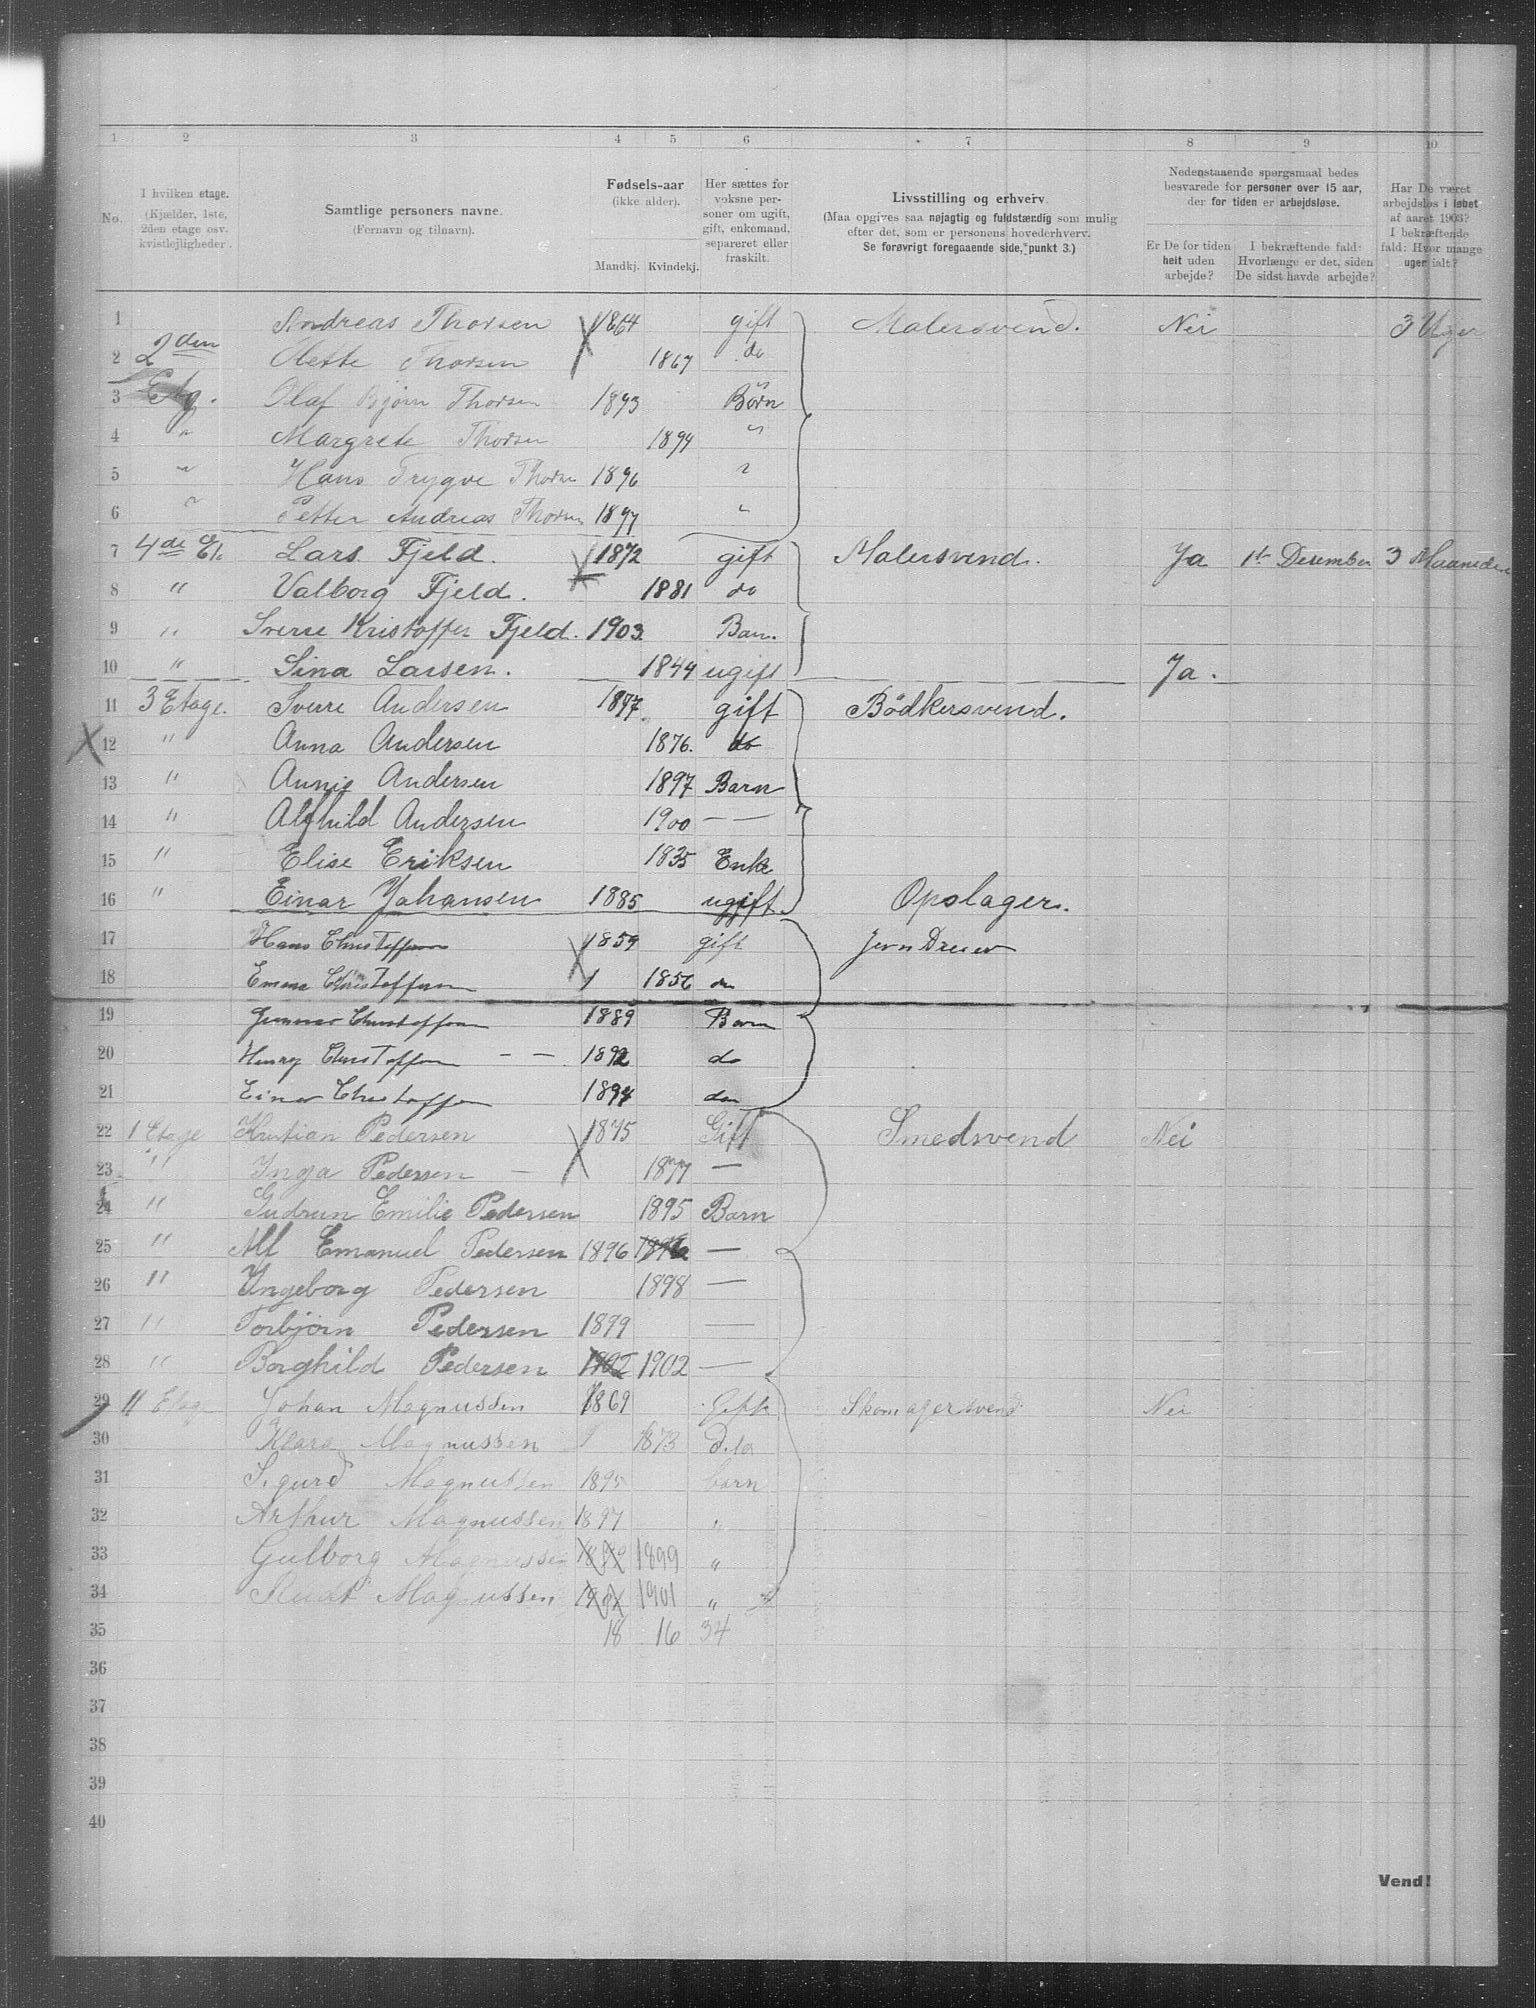 1 2 3 4 5 6 7 8 9 10
No.
I hvilken etage.
(Kjælder, 1ste,
2den etage osv.
kvistlejligheder).
Samtlige personers navne.
(Fornavn og tilnavn).
Fødsels-aar
(ikke alder).
Mandkj. Kvindekj.
Her sættes for
voksne per-
soner om ugift,
gift, enkemand,
separeret eller
fraskilt.
Livsstilling og erhverv.
(Maa opgives saa nøjagtig og fuldstændig som mulig
efter det, som er personens hovederhverv.
Se forøvrigt foregaaende side, punkt 3.)
Nedenstaaende spørgsmaal bedes
besvarede for personer over 15 aar,
der for tiden er arbejdsløse.
Er De for tiden
helt uden
arbejde?
I bekræftende fald:
Hvorlænge er det, siden
De sidst havde arbejde?
Har De været
arbejdsløs i løbet
af aaret 1903?
I bekræftende
fald: Hvor mange
uger ialt?
1 Andreas Thorsen 1864 gift Malersvend. Nei 3 Uger
2 2den Olette Thorsen 1867 do
3 Etg. Olaf Bjørn Thorsen 1893 Börn
4 " Margrete Thorsen 1894 "
5 " Hans Trygve Thorsen 1896 "
6 " Petter Andreas Thorsen 1897 "
7 4de Et. Lars Fjeld. 1872 gift Malersvend. Ja 1st Desember 3 Maaneder
8 " Valborg Fjeld. 1881 do
9 " Sverre Kristoffer Fjeld. 1903 Barn.
10 " Sina Larsen. 1844 ugift Ja.
11 3 Etage. Sverre Andersen 1877 gift Bödkersvend.
X 12 " Anna Andersen 1876. do
13 " Annie Andersen 1897 Barn
14 " Alfhild Andersen 1900 — —
15 " Elise Eriksen 1835 Enke
16 " Einar Johansen 1885 ugift Opslager.
17 Hans Christoffersen 1859 gift Jern Dreier
18 Emma Christoffersen 1 1856 do
19 Gunnar Christoffersen 1889 Barn
20 Henry Christoffersen — — 1892 do
21 Einar Christoffersen 1894 do
22 1 Etage Kristian Pedersen 1875 Gift Smedsvend Nei
23 " Inga Pedersen — 1877 —
24 " Gudrun Emilie Pedersen 1895 Barn
25 " Alf Emanuel Pedersen 1896 1896 —
26 " Yngeborg Pedersen 1898 —
27 " Torbjørn Pedersen 1899 —
28 " Borghild Pedersen 1902 1902 —
29 11 Etag Johan Magnussen 1869 Gift Skomagersvend Nei
30 Klara Magnussen 1 1873 dito
31 Sigurd Magnussen 1895 barn
32 Arthur Magnussen 1897 "
33 Gulborg Magnussen 1899 "
34 Magnussen 1901 "
35 18 16 34
36
37
38
39
40
Vend!